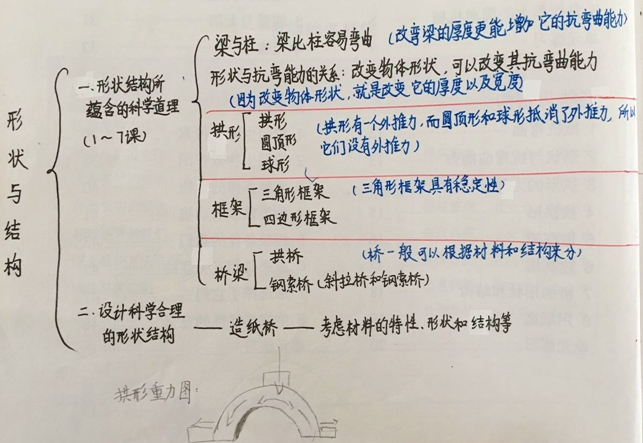 形状与结构
一.形状结构所
蕴含的科学道理
(1～7课)
梁与柱:梁比柱容易弯曲 (改变梁的厚度更能增加它的抗弯曲能力)
形状与抗弯能力的关系:改变物体形状,可以改变其抗弯曲能力
(因为改变物体形状,就是改变它的厚度以及宽度)
拱形
拱形
圆顶形
球形
(拱形有一个外推力,而圆顶形和球形抵消了外推力,所以
它们没有外推力)
框架
三角形框架 (三角形框架具有稳定性)
四边形框架
桥梁
拱桥 (桥一般可以根据材料和结构来分)
钢索桥(斜拉桥和钢索桥)
二.设计科学合理
的形状结构 —— 造纸桥 —— 考虑材料的特性、形状和结构等
拱形重力图: